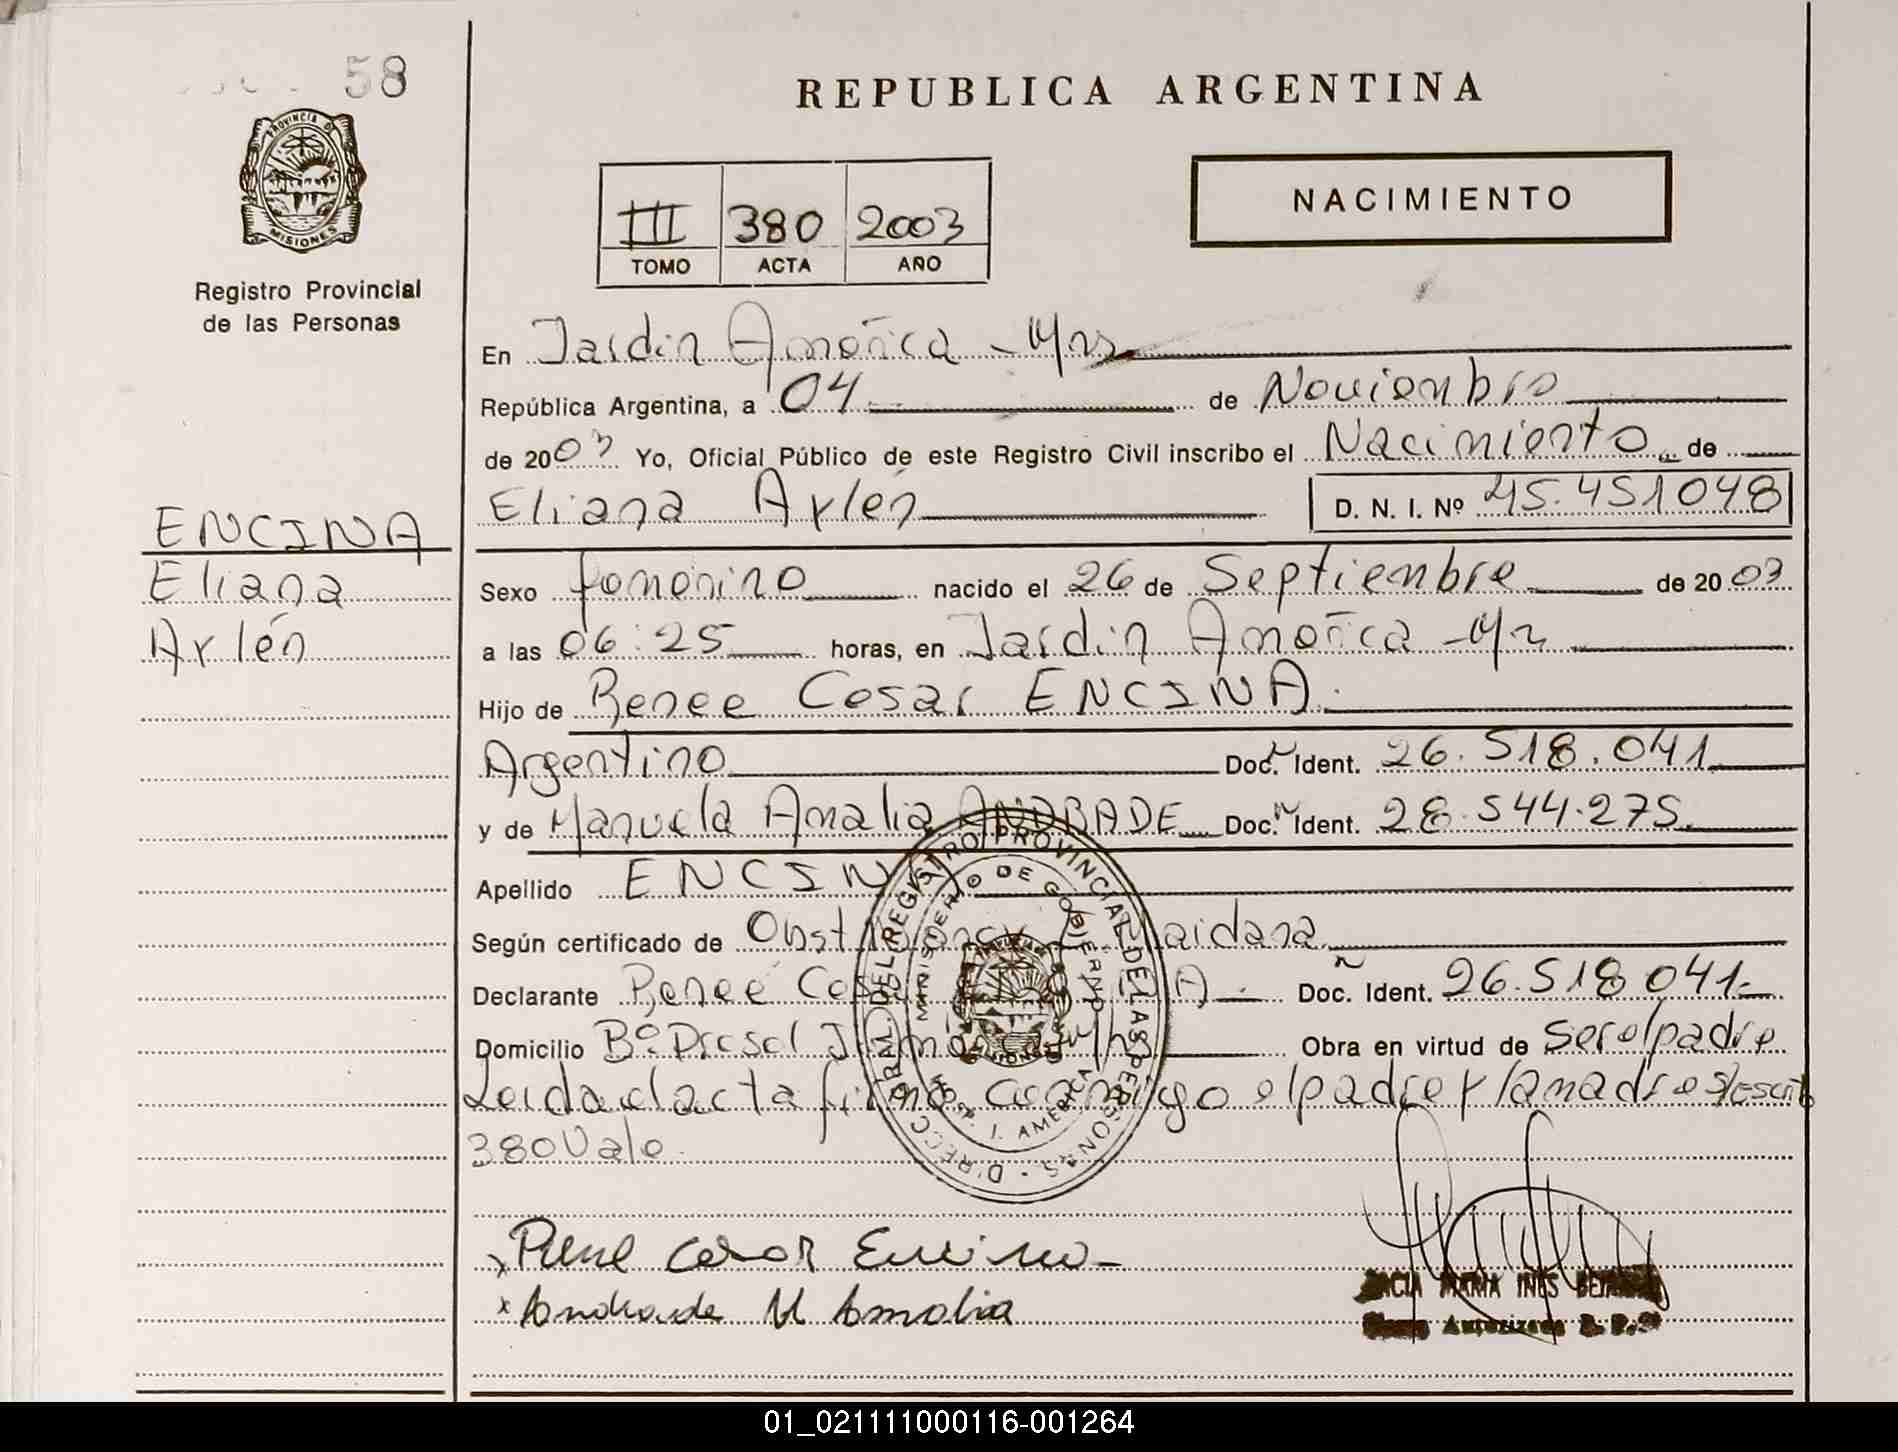 58
REPUBLICA ARGENTINA
PROVINCIA DE
MISIONES
Registro Provincial
de las Personas
NACIMIENTO
III 380 2003
TOMO ACTA AÑO
En Jardin América - Mns
República Argentina, a 04 de Noviembre
de 2003 Yo, Oficial Público de este Registro Civil inscribo el Nacimiento de
Eliana Arlén D. N. I. Nº 45.451048
ENCINA
Eliana
Arlén
Sexo femenino nacido el 26 de Septiembre de 2003
a las 06:25 horas, en Jardin América - Mn
Hijo de Renee Cesar ENCINA.
Argentino Doc. Ident. 26.518.041
y de Manuela Amalia ANDRADE Doc. Ident. 28.544.275.
Apellido ENCINA
Según certificado de Obst Maidana
Declarante Renee Doc. Ident. 26.518 041.-
Domicilio Bº Obra en virtud de ser el padre
Leida el acta firma conmigo el padre y la madre s/escrito
380 Vale
DIRECC. GRAL. DEL REGISTRO PROVINCIAL DE LAS PERSONAS
MINISTERIO DE GOBIERNO
J. AMERICA
Rene Cesar Encina -
x Andrade M Amalia
MARIA INES
Autorizada
01_021111000116-001264